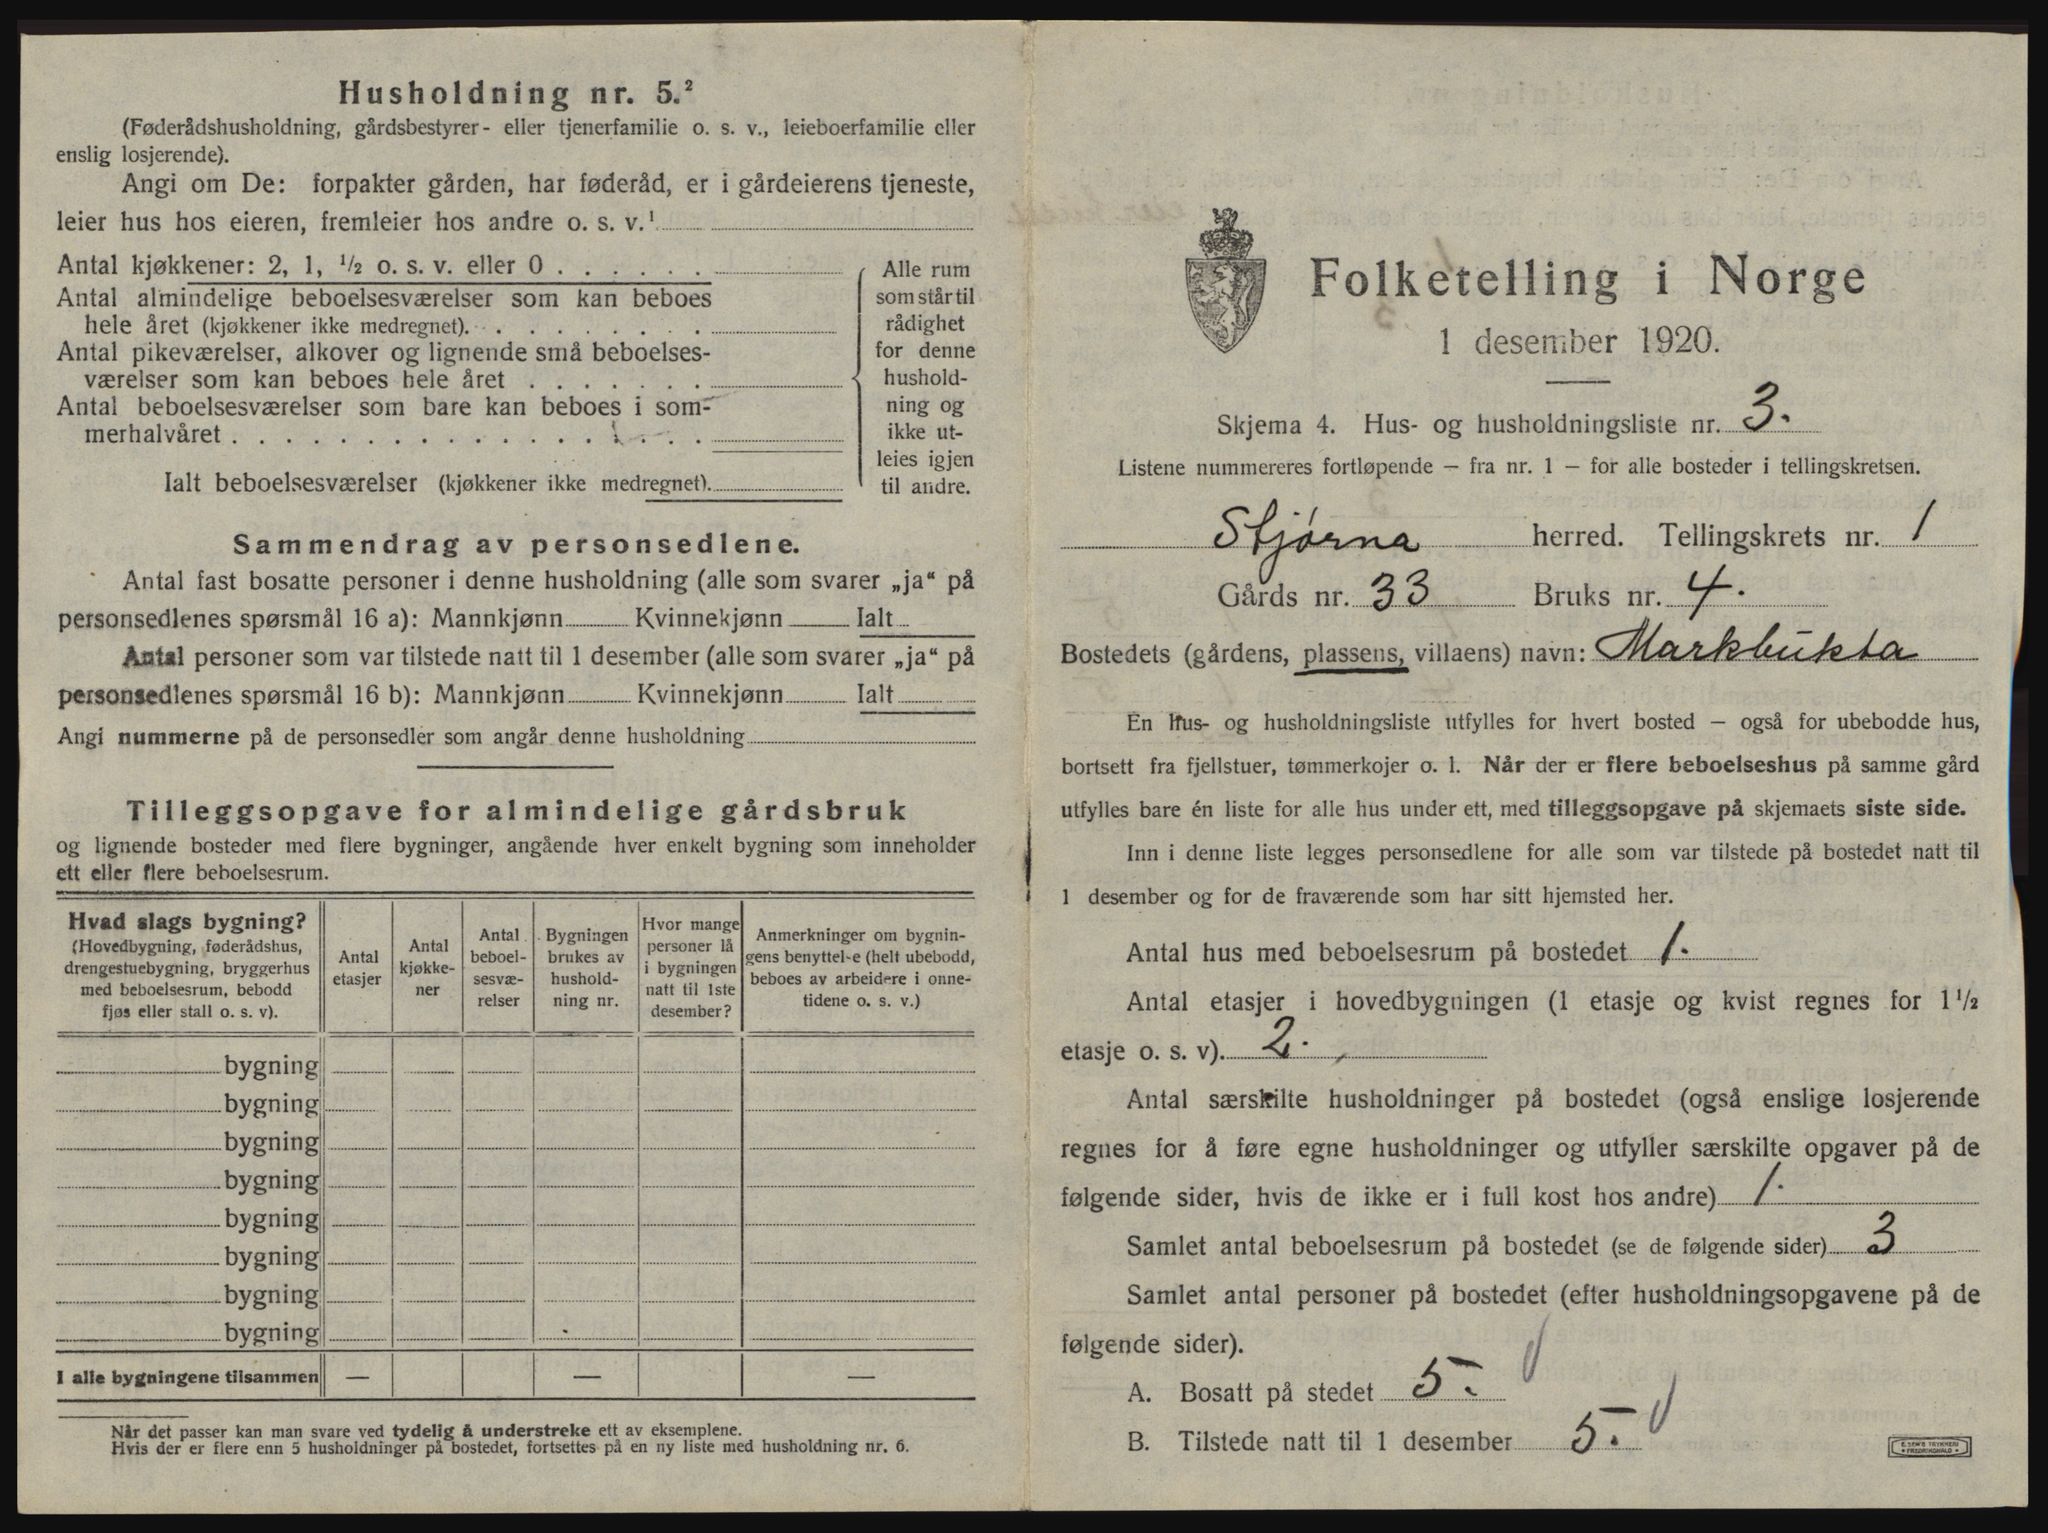 Husholdning nr. 5.²
(Føderådshusholdning, gårdsbestyrer- eller tjenerfamilie o. s. v., leieboerfamilie eller
enslig losjerende).
Angi om De: forpakter gården, har føderåd, er i gårdeierens tjeneste,
leier hus hos eieren, fremleier hos andre o. s. v.¹
Antal kjøkkener: 2, 1, ½ o. s. v. eller 0 . . . . . .
Antal almindelige beboelsesværelser som kan beboes
hele året (kjøkkener ikke medregnet). . . . . . . . .
Antal pikeværelser, alkover og lignende små beboelses-
værelser som kan beboes hele året . . . . . . .
Antal beboelsesværelser som bare kan beboes i som-
merhalvåret . . . . . . . . . . . . . . . . . .
Ialt beboelsesværelser (kjøkkener ikke medregnet).
Alle rum
som står til
rådighet
for denne
hushold-
ning og
ikke ut-
leies igjen
til andre.
Sammendrag av personsedlene.
Antal fast bosatte personer i denne husholdning (alle som svarer „ja“ på
personsedlenes spørsmål 16 a): Mannkjønn Kvinnekjønn Ialt
Antal personer som var tilstede natt til 1 desember (alle som svarer „ja“ på
personsedlenes spørsmål 16 b): Mannkjønn Kvinnekjønn Ialt
Angi nummerne på de personsedler som angår denne husholdning
Tilleggsopgave for almindelige gårdsbruk
og lignende bosteder med flere bygninger, angående hver enkelt bygning som inneholder
ett eller flere beboelsesrum.
Hvad slags bygning?
(Hovedbygning, føderådshus,
drengestuebygning, bryggerhus
med beboelsesrum, bebodd
fjøs eller stall o. s. v).
Antal
etasjer
Antal
kjøkke-
ner
Antal
beboel-
sesvæ-
relser
Bygningen
brukes av
hushold-
ning nr.
Hvor mange
personer lå
i bygningen
natt til 1ste
desember?
Anmerkninger om bygnin-
gens benyttel-e (helt ubebodd,
beboes av arbeidere i onne-
tidene o. s. v.)
bygning
bygning
bygning
bygning
bygning
bygning
bygning
bygning
I alle bygningene tilsammen — — —
Når det passer kan man svare ved tydelig å understreke ett av eksemplene.
Hvis der er flere enn 5 husholdninger på bostedet, fortsettes på en ny liste med husholdning nr. 6.
Folketelling i Norge
1 desember 1920.
Skjema 4. Hus- og husholdningsliste nr. 3.
Listene nummereres fortløpende – fra nr. 1 – for alle bosteder i tellingskretsen.
Stjørna herred. Tellingskrets nr. 1
Gårds nr. 33 Bruks nr. 4.
Bostedets (gårdens, plassens, villaens) navn: Markbukta
En hus- og husholdningsliste utfylles for hvert bosted – også for ubebodde hus,
bortsett fra fjellstuer, tømmerkojer o. l. Når der er flere beboelseshus på samme gård
utfylles bare én liste for alle hus under ett, med tilleggsopgave på skjemaets siste side.
Inn i denne liste legges personsedlene for alle som var tilstede på bostedet natt til
1 desember og for de fraværende som har sitt hjemsted her.
Antal hus med beboelsesrum på bostedet 1.
Antal etasjer i hovedbygningen (1 etasje og kvist regnes for 1½
etasje o. s. v). 2.
Antal særskilte husholdninger på bostedet (også enslige losjerende
regnes for å føre egne husholdninger og utfyller særskilte opgaver på de
følgende sider, hvis de ikke er i full kost hos andre) 1.
Samlet antal beboelsesrum på bostedet (se de følgende sider) 3
Samlet antal personer på bostedet (efter husholdningsopgavene på de
følgende sider).
A. Bosatt på stedet 5.
B. Tilstede natt til 1 desember 5.